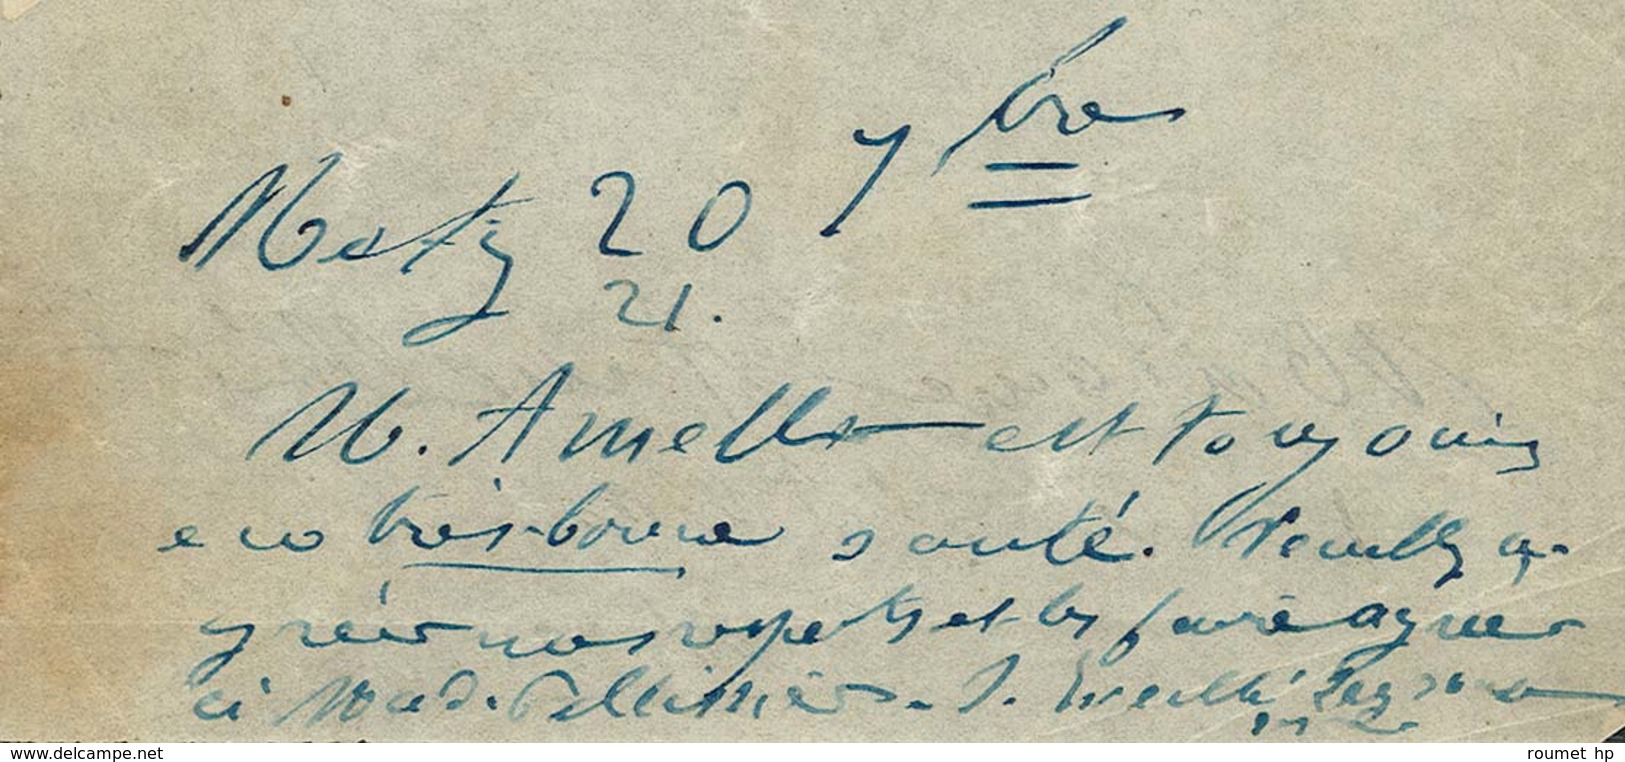 Metz 20 7bre
21.
M. Amelle est toujours
en très-bonne santé. Veuillez a-
gréer nos respects et les faire agréer
à Mad. Pellissier. J.
www.delcampe.net
roumet hp